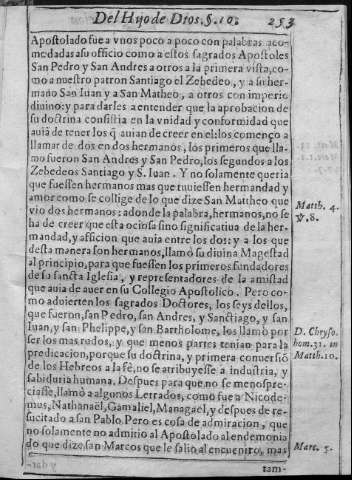 Del Hijo de Dios. §. 10. 253
Apostolado fue a vnos poco a poco con palabras aco-
modadas a su officio como a estos sagrados Apostoles
San Pedro y San Andres a otros a la primera vista, co-
mo a nuestro patron Santiago el Zebedeo, y a su her-
mano San Iuan y a San Matheo, a otros con imperio
diuino: y para darles a entender que la aprobacion de
su doctrina consistia en la vnidad y conformidad que
auiā de tener los q̄ auian de creer en el: los començo a
llamar de dos en dos hermanos, los primeros que lla-
mo fueron San Andres y San Pedro, los segundos a los
Zebedeos Santiago y S. Iuan. Y no solamente queria
que fuessen hermanos mas que tuuiessen hermandad y
amor como se collige de lo que dize San Mattheo que
vio dos hermanos: adonde la palabra, hermanos, no se
ha de creer que esta ociosa sino significatiua de la her-
mandad, y afficion que auia entre los dos: y a los que
desta manera son hermanos, llamó su diuina Magestad
al principio, para que fuessen los primeros fundadores
de la sancta Iglesia, y representadores de la amistad
que auia de auer en su Collegio Apostolico. Pero co-
mo aduierten los sagrados Doctores, los seys dellos,
que fueron, san Pedro, san Andres, y Sanctiago, y san
Iuan, y san Phelippe, y san Bartholome, los llamò por
ser los mas rudos, y que menos partes tenian para la
predicacion, porque su doctrina, y primera conuersió
de los Hebreos a la fè, no se atribuyesse a industria, y
sabiduria humana. Despues para que no se menospre-
ciasse, llamò a algunos Letrados, como fue a Nicode-
mus, Nathanaël, Gamaliel, Managaël, y despues de re-
sucitado a san Pablo. Pero es cosa de admiracion, que
no solamente no admitio al Apostolado al endemonia
do que dize san Marcos que le salio al encuentro, mas
tam-
Matth. 4.
℣. 8.
D. Chryso.
hom. 31. in
Matth. 10.
Marc. 5.